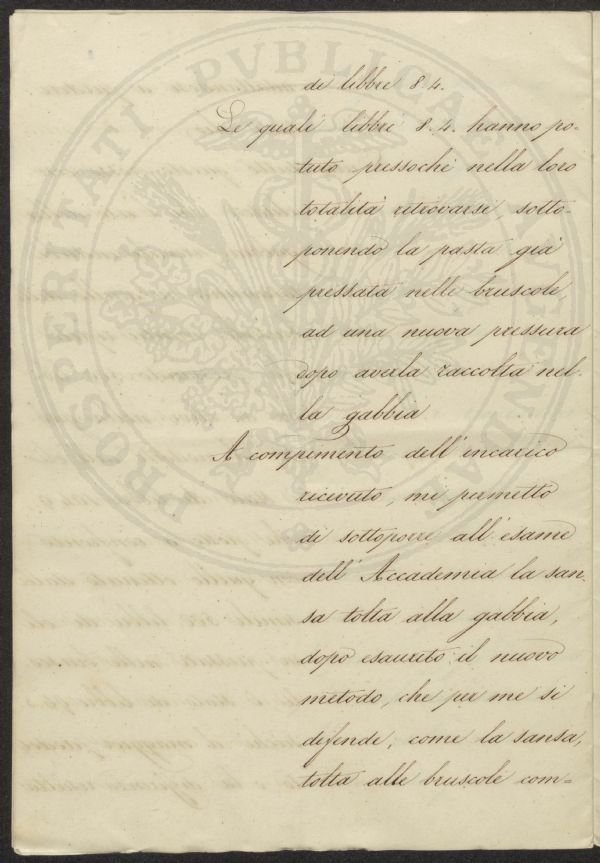 di libbre 8.4.
Le quali libbre 8.4. hanno po-
tuto pressochè nella loro
totalità ritrovarsi, sotto-
ponendo la pasta già
pressata nelle bruscole,
ad una nuova pressura
dopo averla raccolta nel-
la gabbia
A compimento dell'incarico
ricevuto, mi permetto
di sottoporre all'esame
dell'Accademia la san-
sa tolta alla gabbia,
dopo esaurito il nuovo
metodo, che per me si
difende; come la sansa,
tolta alle bruscole com=
PROSPERITATI PVBLICAE AVGENDAE